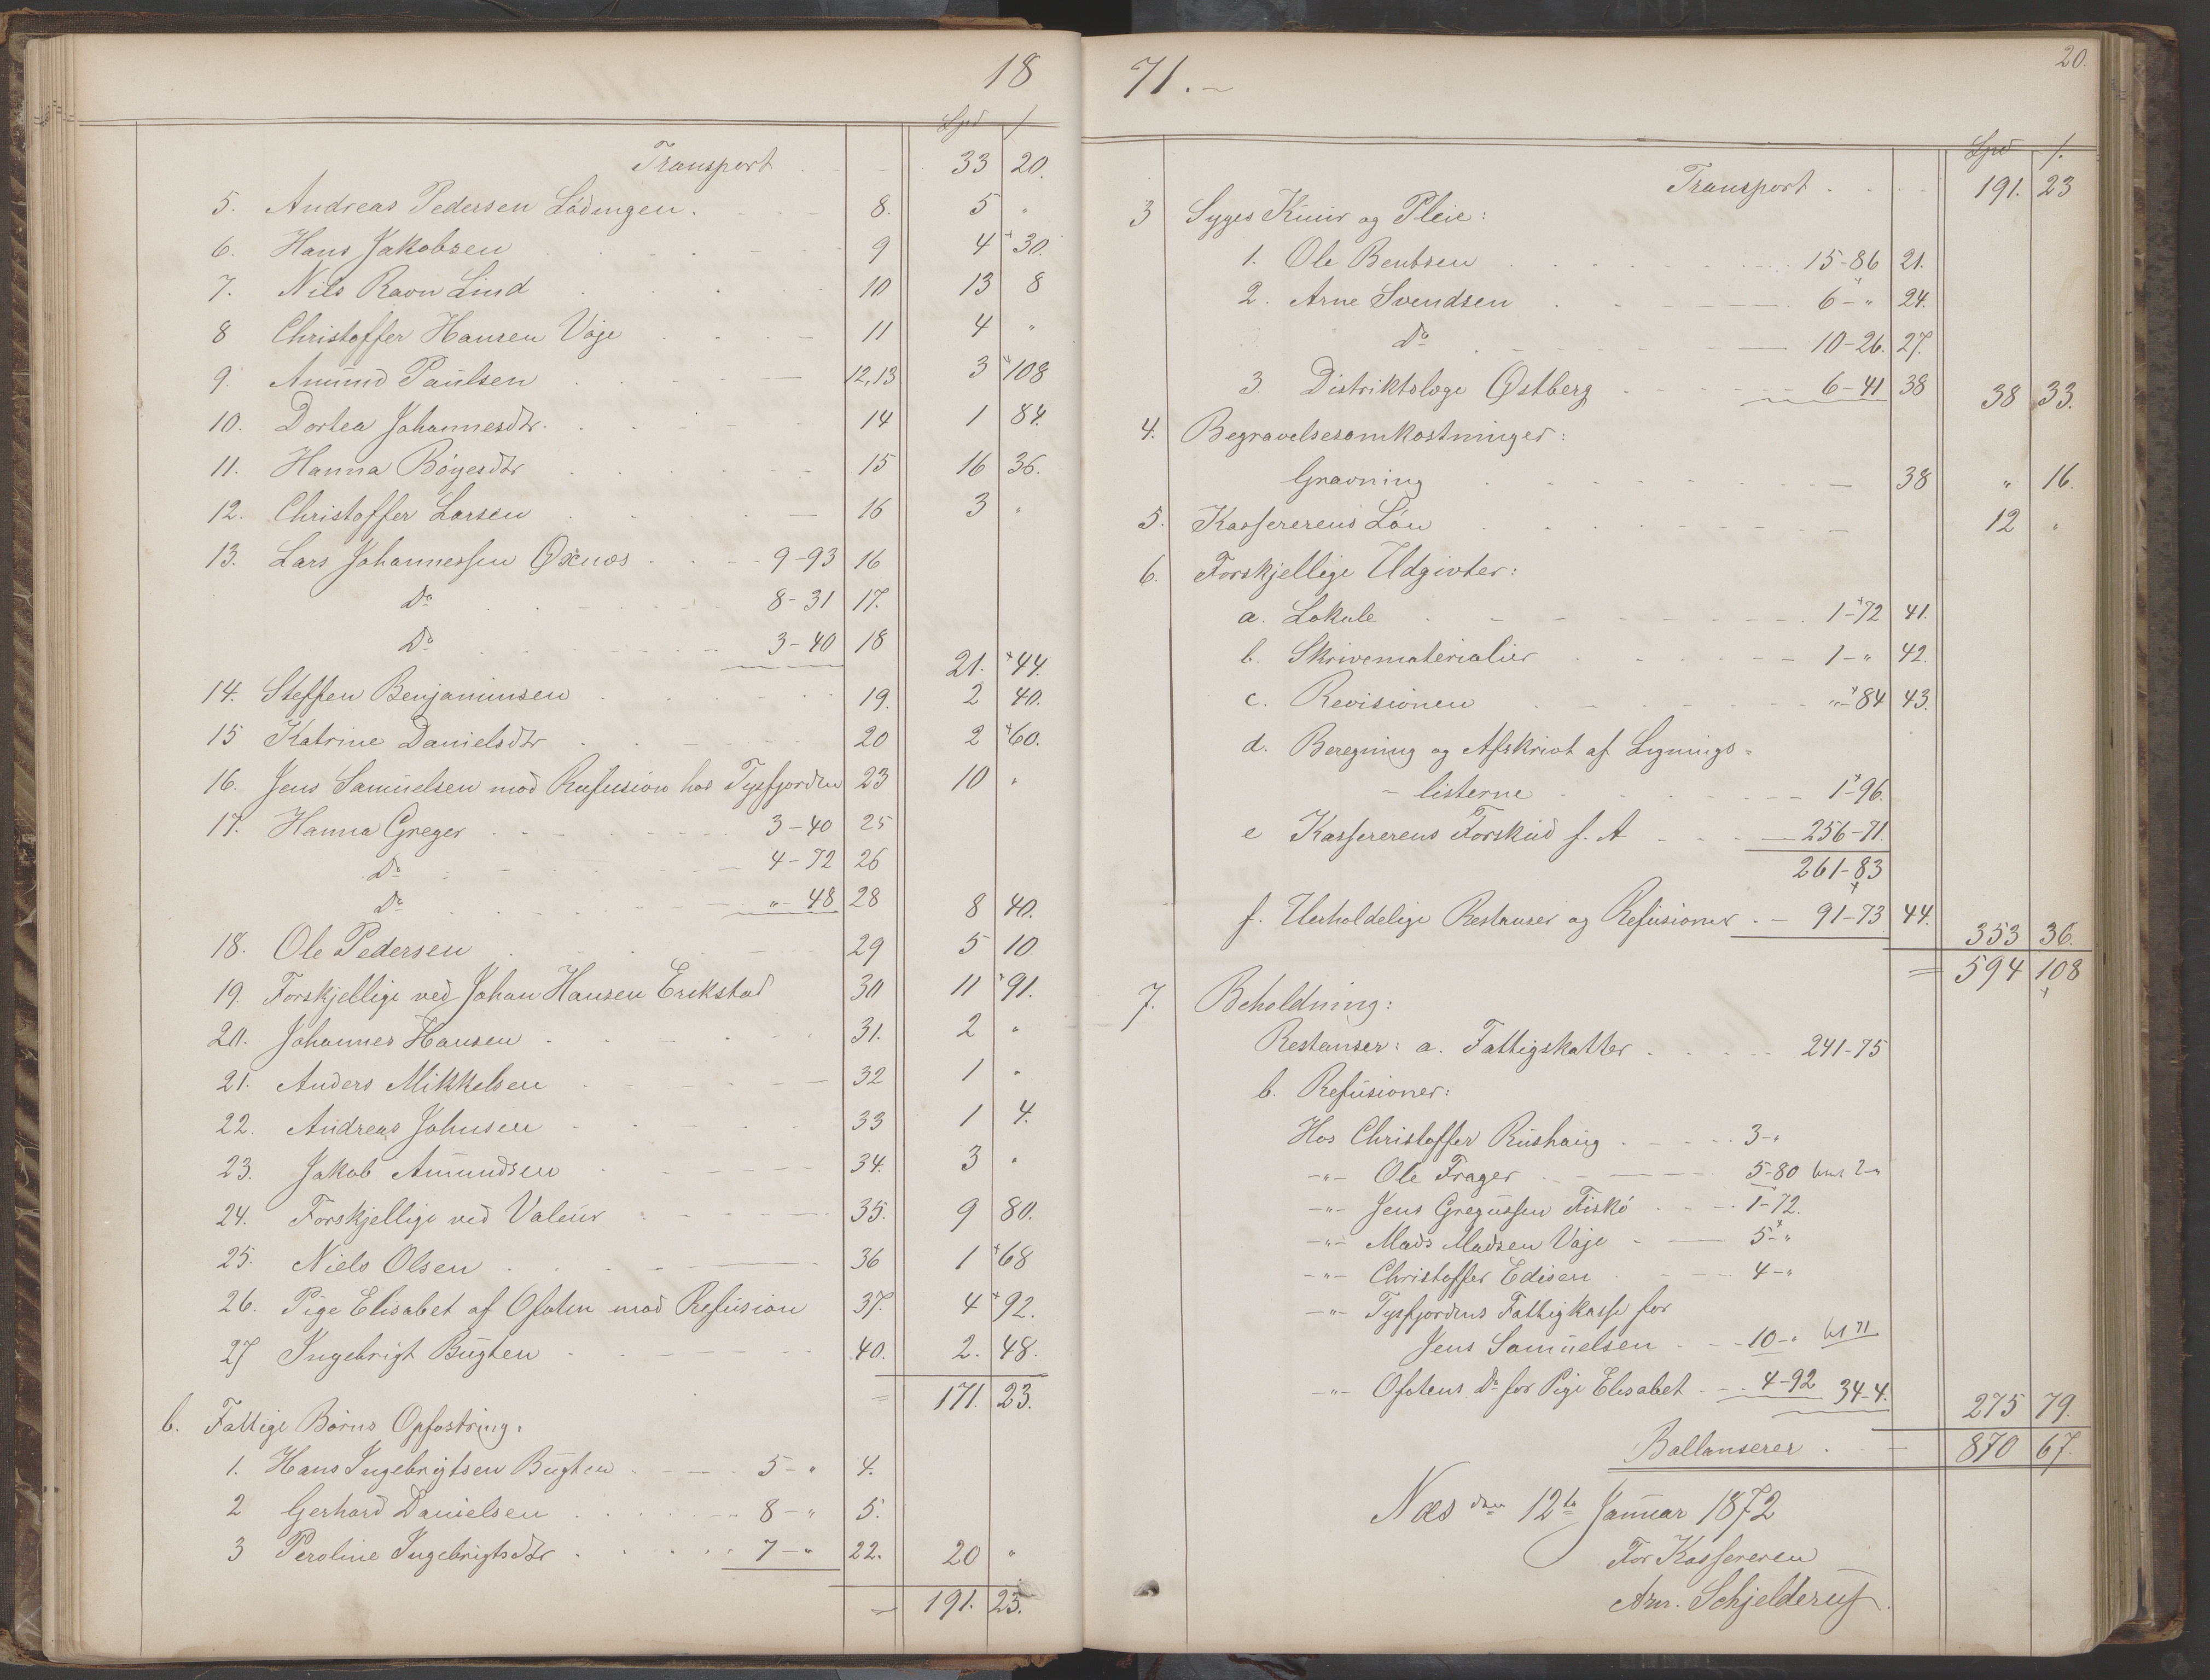 18
Spd /
Transport 33 20.
5. Andreas Pedersen Lödingen. 8. 5 "
6. Hans Jakobsen 9 4 30.
7. Nils Ravn Lind 10 13 8
8 Christoffer Hansen Vaje 11 4 "
9. Amund Paulsen 12,13 3 108
10. Dortea Johannesdtr. 14 1 84.
11. Hanna Böyesdtr 15 16 36.
12. Christoffer Larsen 16 3 "
13. Lars Johannessen Øxnæs 9-93 16
Do 8-31 17.
Do 3-40 18 21. 44.
14. Steffen Benjaminsen 19. 2 40.
15 Katrine Danielsdtr 20 2 60.
16. Jens Samuelsen mod Refusion hos Tysfjorden 23 10 "
17. Hanna Greger 3-40 25
Do 4-72 26
Do "-48 28 8 40.
18. Ole Pedersen 29 5 10.
19. Forskjellige ved Johan Hansen Erikstad 30 11 91.
20. Johannes Hansen 31. 2 "
21. Anders Mikkelsen 32 1 "
22. Andreas Johnsen 33 1 4.
23. Jakob Amundsen 34. 3 "
24. Forskjellige ved Valeur 35. 9 80.
25. Niels Olsen 36 1 68
26. Pige Elisabet af Ofoten mod Refusion 37. 4 92.
27 Ingebrigt Bugten 40. 2. 48.
= 171. 23.
b. Fattige Börns Opfostring:
1. Hans Ingebrigtsen Bugten 5-" 4.
2 Gerhard Danielsen 8-" 5.
3 Peroline Ingebrigtsdtr 7-" 22. 20 "
= 191. 23.
71.-
20.
Spd /.
Transport 191. 23
3 Syges Kuur og Pleie:
1. Ole Bentsen 15-86 21.
2. Arne Svendsen 6-" 24.
do 10-26. 27.
3. Distriktslæge Østberg 6-41 38 38 33.
4. Begravelsesomkostninger:
Gravning 38 " 16.
5. Kassererens Lön 12 "
6. Forskjellige Udgivter:
a. Lokale 1-72 41.
b. Skrivematerialier 1-" 42.
c. Revisionen "-84 43.
d. Beregning og Afskrivt af Lignings-
- listerne 1-96.
e Kassererens Forskud f. A 256-71.
261-83
f. Uerholdelige Restanser og Refusioner 91-73 44. 353 36.
= 594 108
7. Beholdning:
Restanser: a. Fattigskatter 241-75
b. Refusioner:
Hos Christoffer Rushaug 3-"
-"- Ole Frager 5-80
-"- Jens Gregussen Fiskö 1-72.
-"- Mads Madsen Vaje 5-"
-"- Christoffer Edisen 4-"
-"- Tysfjordens Fattigkasse for
Jens Samuelsen 10-"
-"- Ofotens Do for Pige Elisabet 4-92 34-4. 275 79.
Ballanserer 870 67.
Næs den 12te Januar 1872
For Kassereren
Arn. Schjelderup.